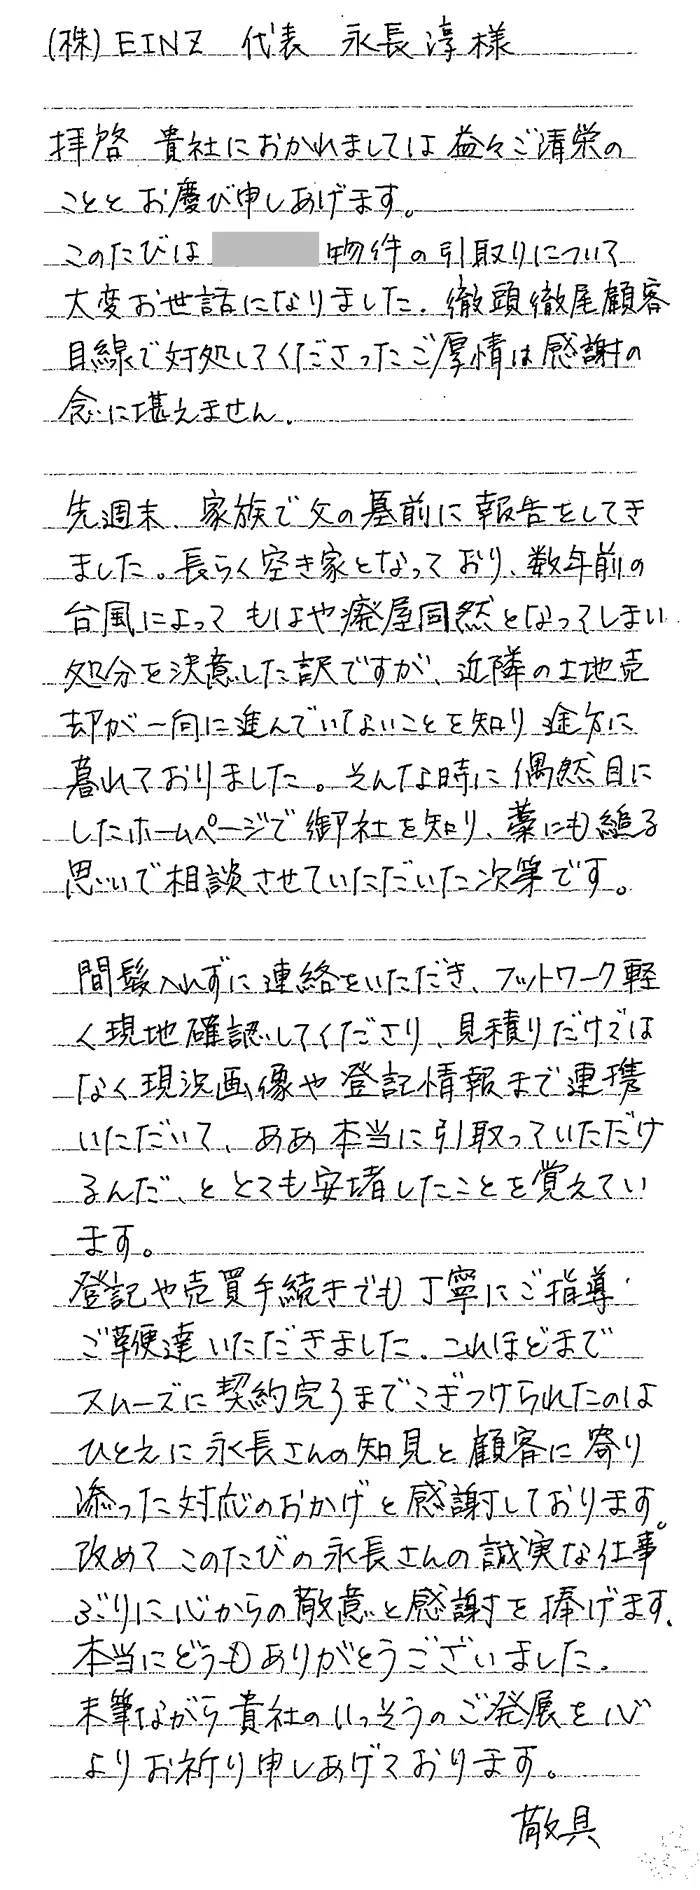 (株)EINZ 代表 永長淳様
拝啓 貴社におかれましては益々ご清栄の
こととお慶び申しあげます。
このたびは 物件の引取りについて
大変お世話になりました。徹頭徹尾顧客
目線で対処してくださったご厚情は感謝の
念に堪えません。
先週末、家族で父の墓前に報告をしてき
ました。長らく空き家となっており、数年前の
台風によってもはや廃屋同然となってしまい
処分を決意した訳ですが、近隣の土地売
却が一向に進んでいないことを知り途方に
暮れておりました。そんな時に偶然目に
したホームページで御社を知り、藁にも縋る
思いで相談させていただいた次第です。
間髪入れずに連絡をいただき、フットワーク軽
く現地確認してくださり、見積りだけでは
なく現況画像や登記情報まで連携
いただいて、ああ本当に引取っていただけ
るんだ、ととても安堵したことを覚えてい
ます。
登記や売買手続きでも丁寧にご指導・
ご鞭達いただきました。これほどまで
スムーズに契約完了までこぎつけられたのは
ひとえに永長さんの知見と顧客に寄り
添った対応のおかげと感謝しております。
改めてこのたびの永長さんの誠実な仕事
ぶりに心からの敬意と感謝を捧げます。
本当にどうもありがとうございました。
末筆ながら貴社のいっそうのご発展を心
よりお祈り申しあげております。
敬具